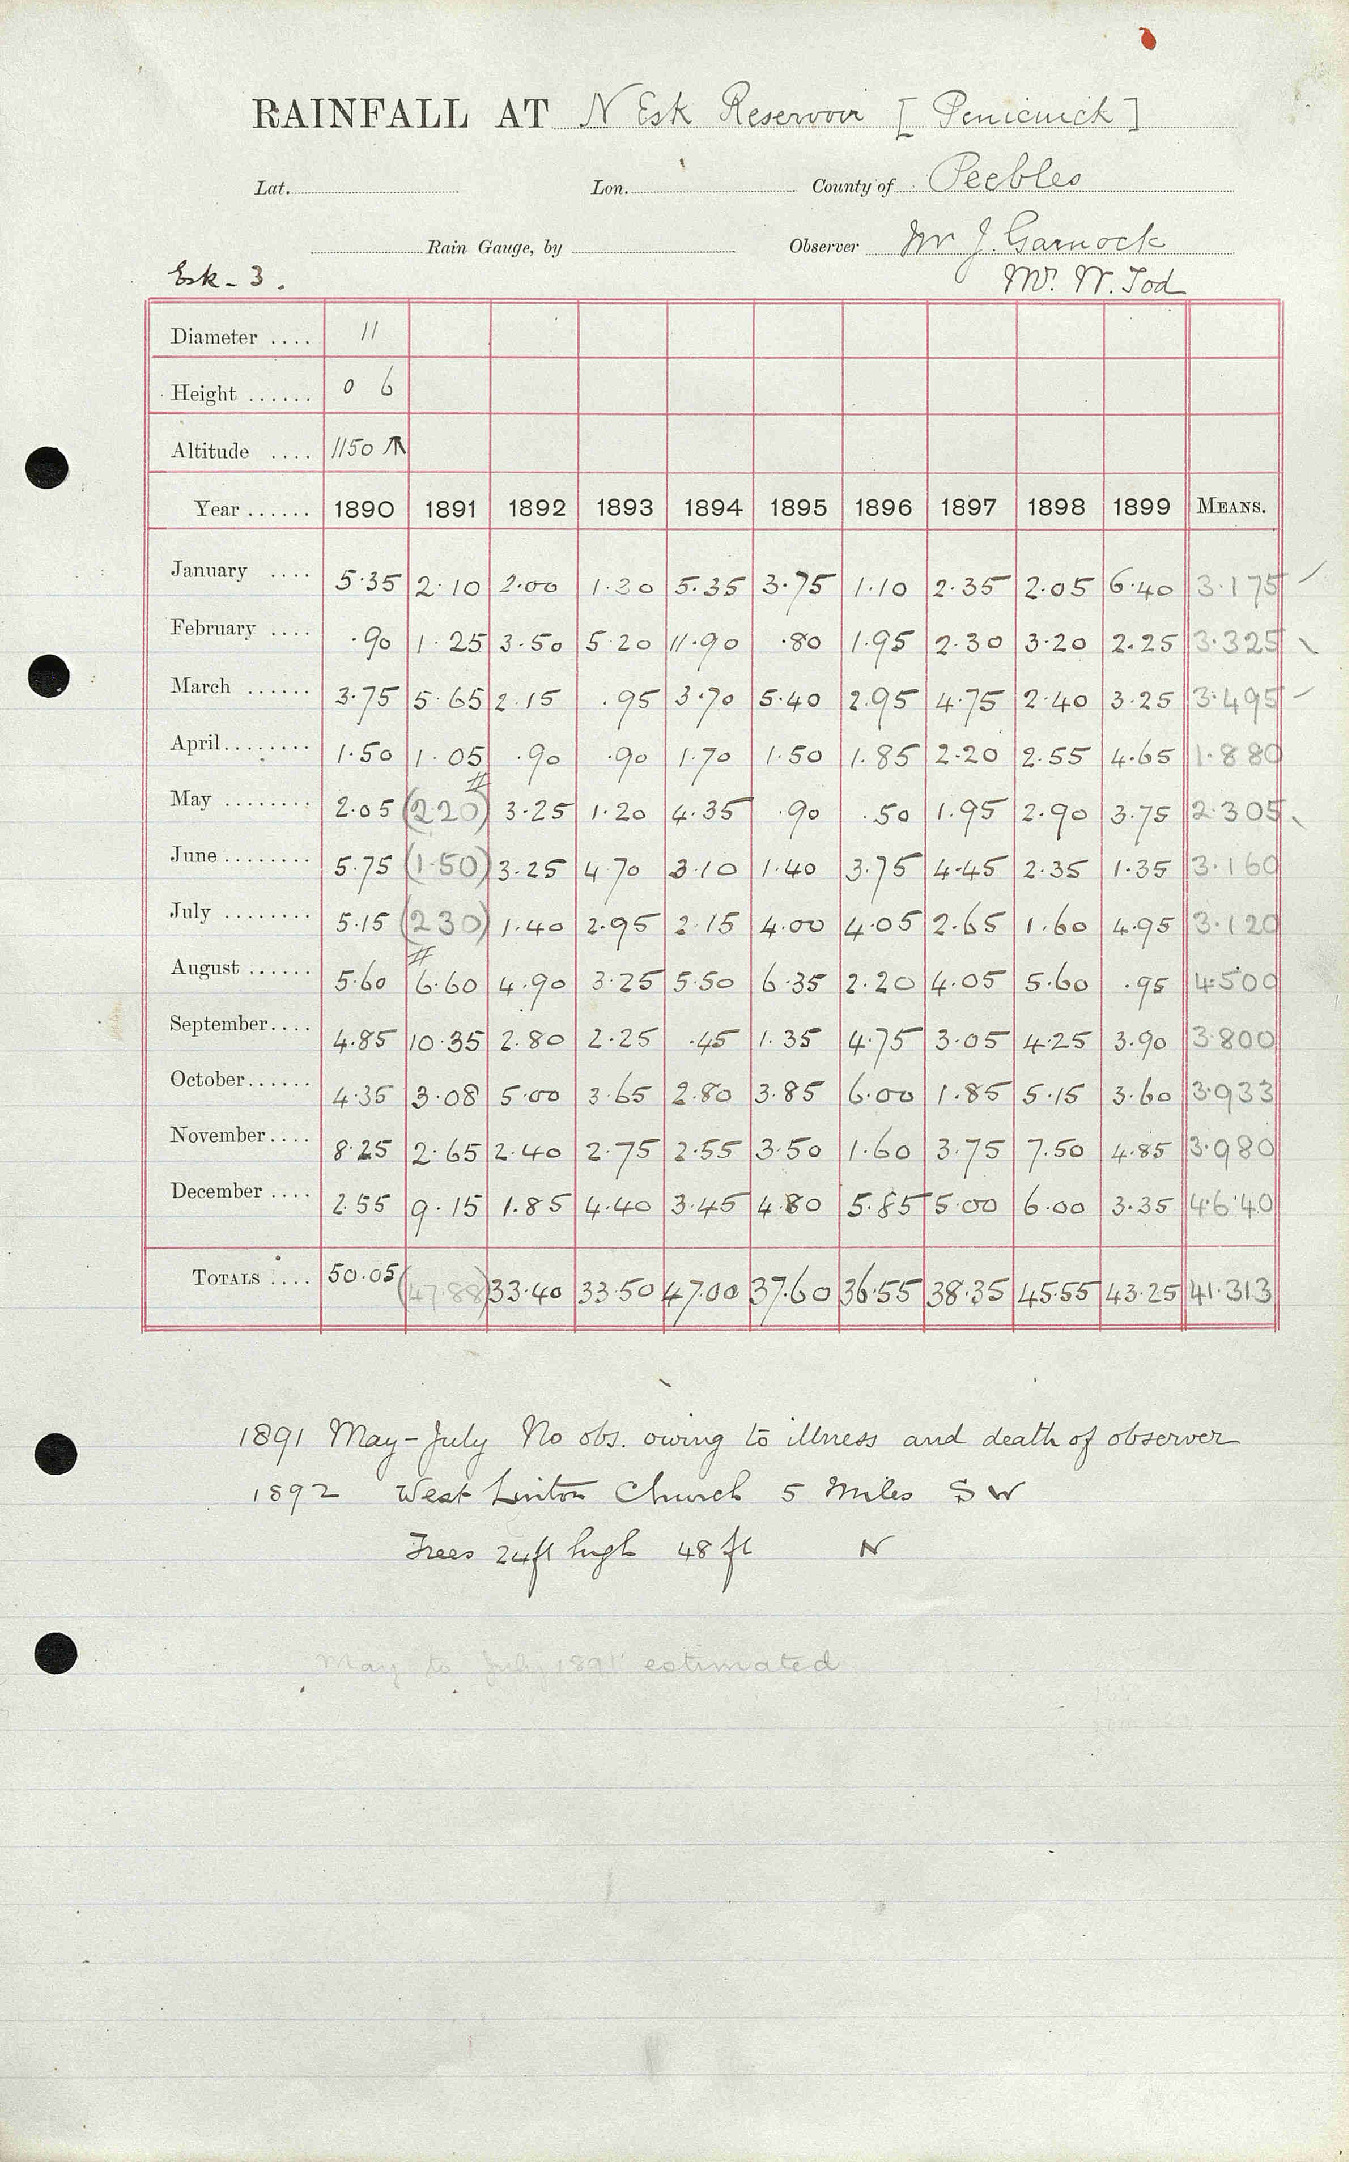 RAINFALL AT N Esk Reservoir [Penicuick]
Lat. Lon. County of Peebles
Rain Gauge, by Observer Mr J. Garnock
Esk - 3. Mr. W. Tod
Diameter .... 11
Height ...... 0 6
Altitude .... 1150 ↑
Year ...... 1890 1891 1892 1893 1894 1895 1896 1897 1898 1899 MEANS.
January .... 5.35 2.10 2.00 1.30 5.35 3.75 1.10 2.35 2.05 6.40 3.175
February .... .90 1.25 3.50 5.20 11.90 .80 1.95 2.30 3.20 2.25 3.325
March ...... 3.75 5.65 2.15 .95 3.70 5.40 2.95 4.75 2.40 3.25 3.495
April ........ 1.50 1.05 .90 .90 1.70 1.50 1.85 2.20 2.55 4.65 1.880
May ........ 2.05 (2.20) # 3.25 1.20 4.35 .90 .50 1.95 2.90 3.75 2.305
June ........ 5.75 (1.50) 3.25 4.70 3.10 1.40 3.75 4.45 2.35 1.35 3.160
July ........ 5.15 (2.30) # 1.40 2.95 2.15 4.00 4.05 2.65 1.60 4.95 3.120
August ...... 5.60 6.60 4.90 3.25 5.50 6.35 2.20 4.05 5.60 .95 4.500
September .... 4.85 10.35 2.80 2.25 .45 1.35 4.75 3.05 4.25 3.90 3.800
October ...... 4.35 3.08 5.00 3.65 2.80 3.85 6.00 1.85 5.15 3.60 3.933
November .... 8.25 2.65 2.40 2.75 2.55 3.50 1.60 3.75 7.50 4.85 3.980
December .... 2.55 9.15 1.85 4.40 3.45 4.80 5.85 5.00 6.00 3.35 4.640
TOTALS .... 50.05 (47.88) 33.40 33.50 47.00 37.60 36.55 38.35 45.55 43.25 41.313
1891 May - July No obs. owing to illness and death of observer
1892 West Linton Church 5 miles SW
Trees 24ft high 48 ft N
May to July 1891 estimated